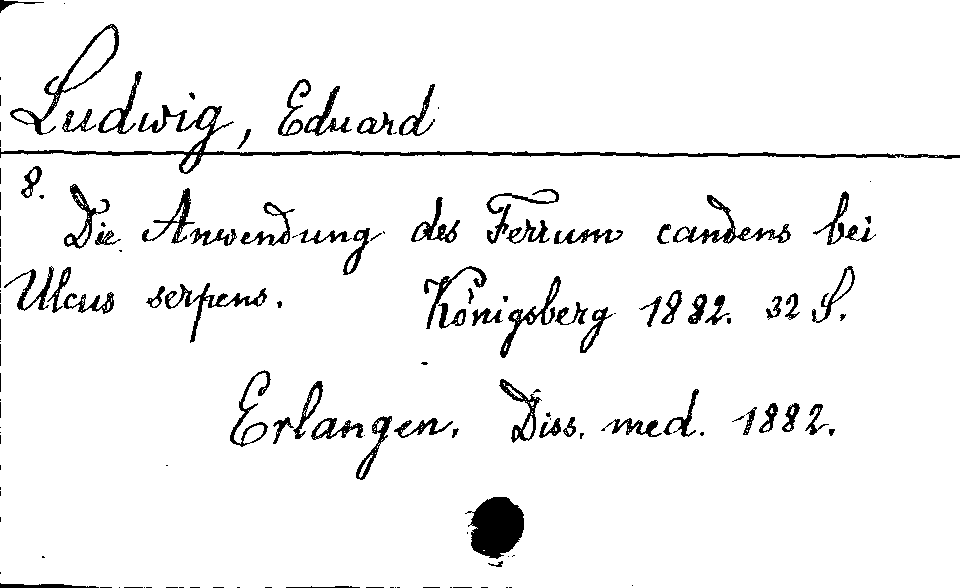 Ludwig, Eduard
8.
Die Anwendung des Ferrum candens bei
Ulcus serpens. Königsberg 1882. 32 S.
Erlangen. Diss. med. 1882.